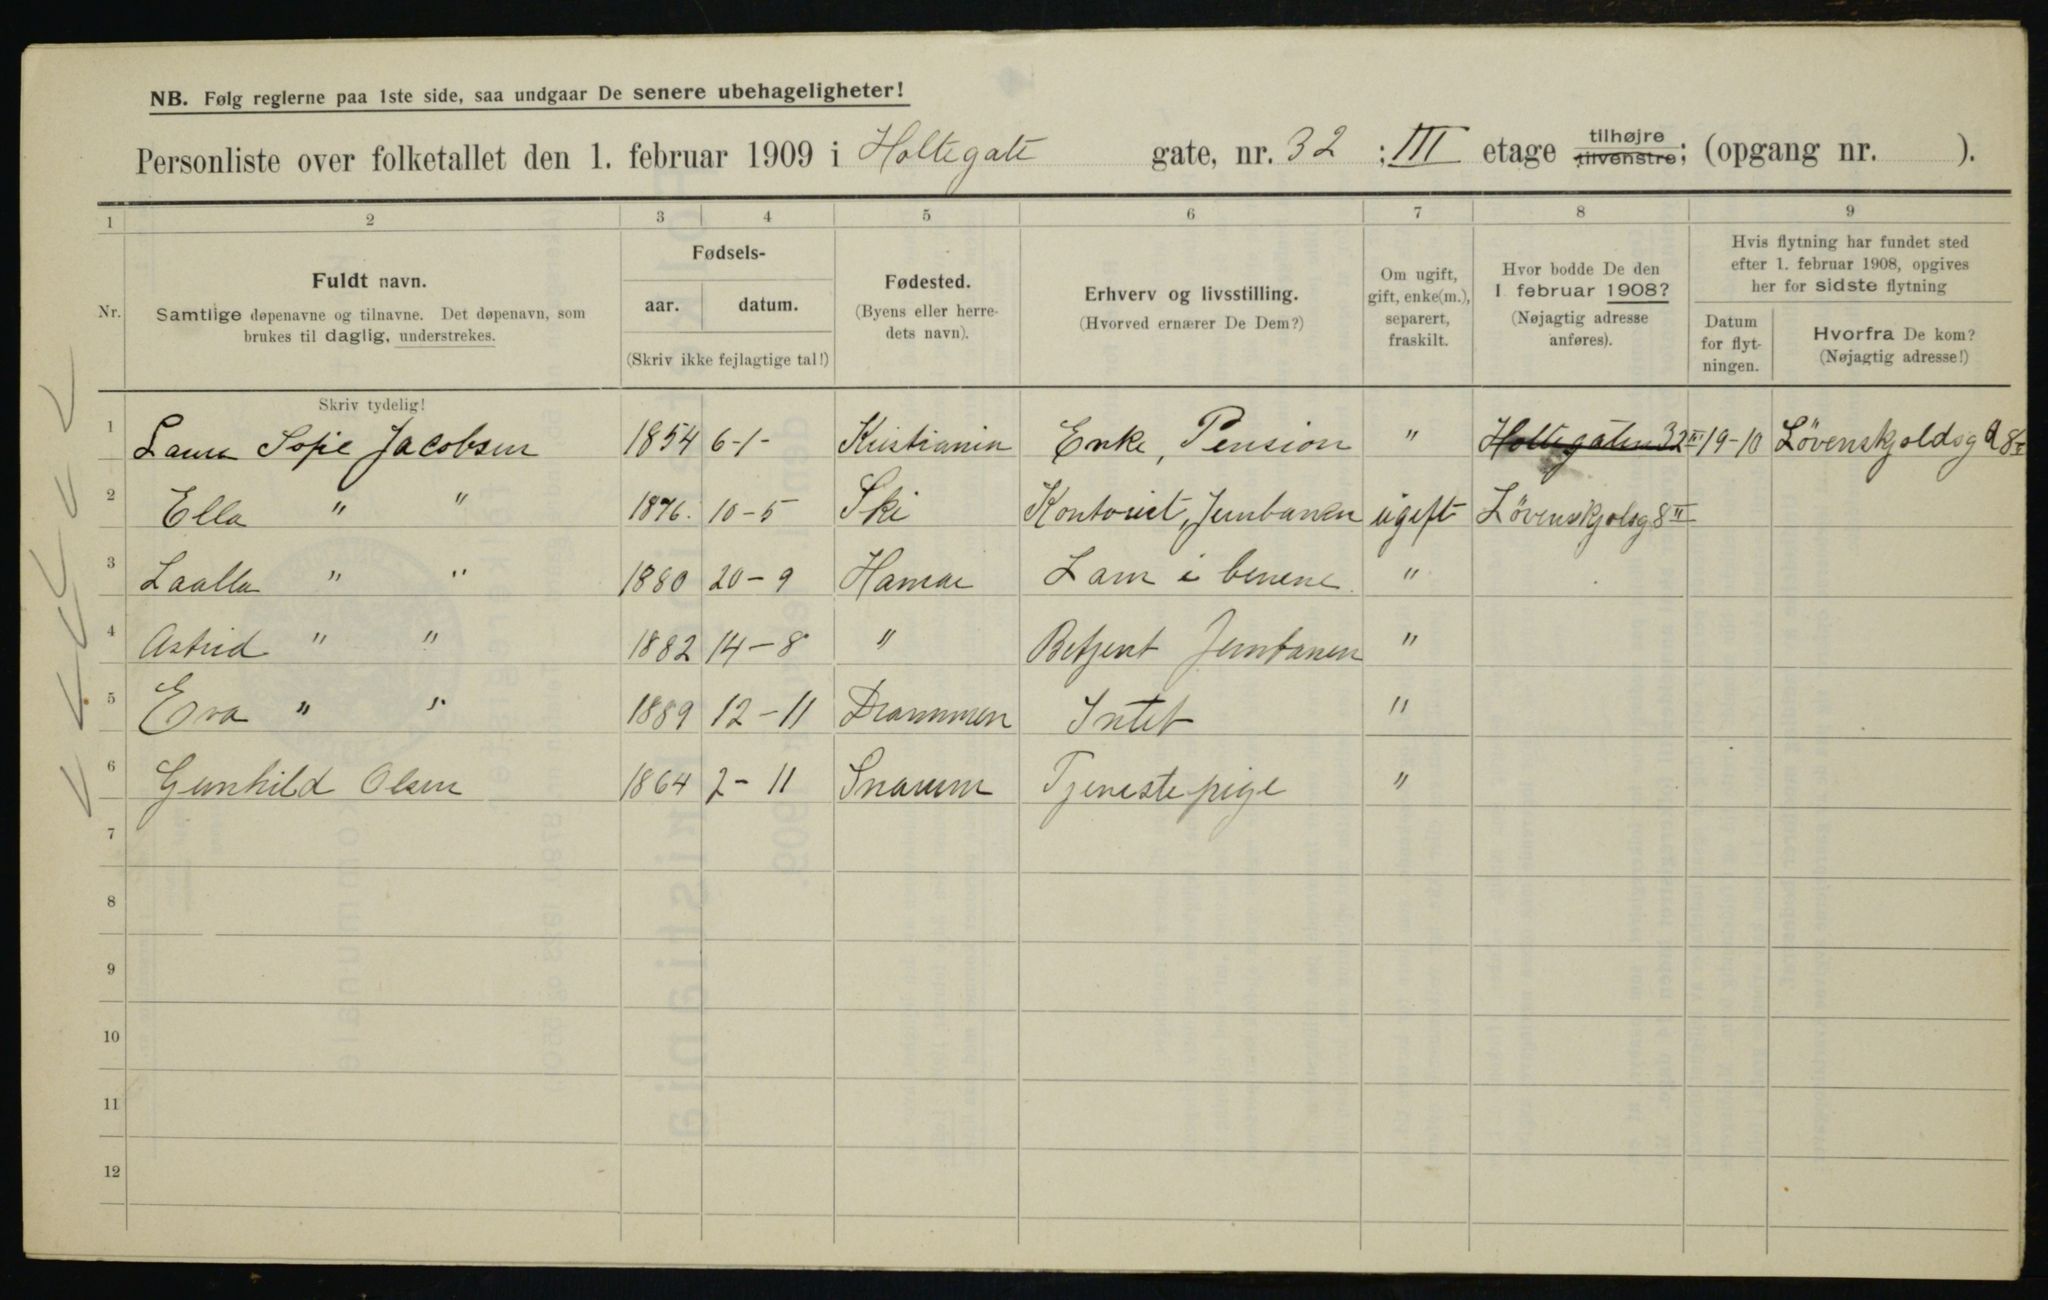 NB. Følg reglerne paa 1ste side, saa undgaar De senere ubehageligheter!
Personliste over folketallet den 1. februar 1909 i Holtegate gate, nr. 32 ; III etage tilhøjre tilvenstre; (opgang nr. ).
1 2 3 4 5 6 7 8 9
Nr.
Fuldt navn.
Samtlige døpenavne og tilnavne. Det døpenavn, som
brukes til daglig, understrekes.
Skriv tydelig!
Fødsels-
aar. datum.
(Skriv ikke fejlagtige tal!)
Fødested.
(Byens eller herre-
dets navn).
Erhverv og livsstilling.
(Hvorved ernærer De Dem?)
Om ugift,
gift, enke(m.),
separert,
fraskilt.
Hvor bodde De den
1 februar 1908?
(Nøjagtig adresse
anføres).
Hvis flytning har fundet sted
efter 1. februar 1908, opgives
her for sidste flytning
Datum
for flyt-
ningen.
Hvorfra De kom?
(Nøjagtig adresse!)
1 Laura Sofie Jacobsen 1854 6-1- Kristiania Enke, Pension " Holtegaten 32 III 19-10 Lövenskjoldsg 8
2 Ella " " 1876. 10-5 Ski Kontorist, Jernbanen ugift Lövenskjolsg 8 II
3 Laalla " " 1880 20-9 Hamar Lam i benene "
4 Astrid " " 1882 14-8 " Betjent Jernbanen "
5 Eva " " 1889 12-11 Drammen Intet "
6 Gunhild Olsen 1864 2-11 Snarum Tjenestepige "
7
8
9
10
11
12